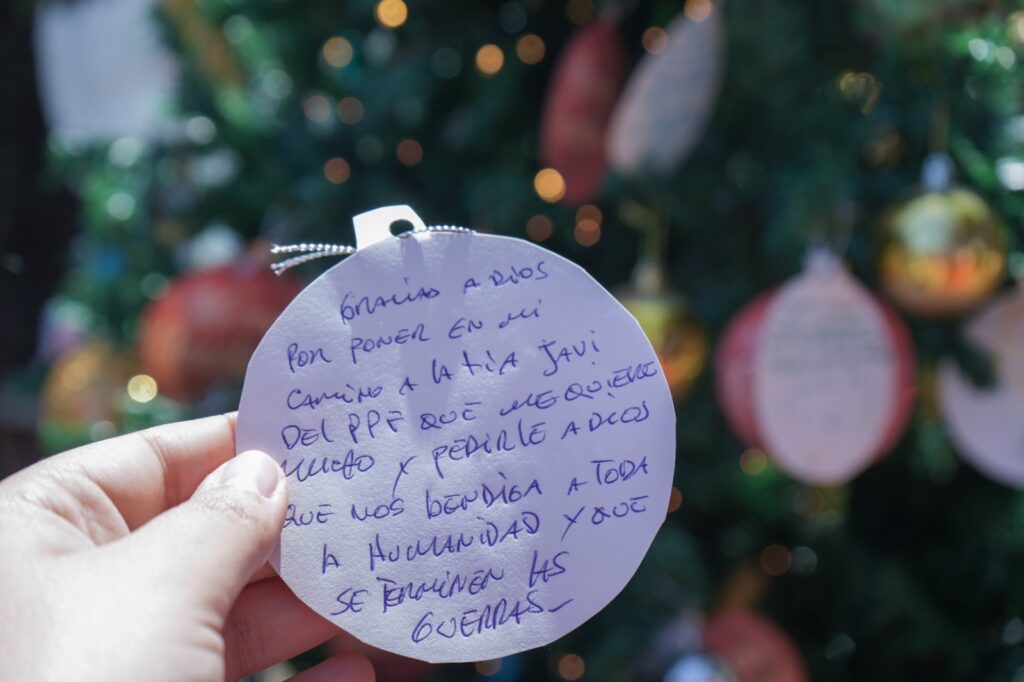 GRACIAS A DIOS
POR PONER EN MI
CAMINO A LA TIA JAVI
DEL PPF QUE ME QUIERE
MUCHO Y PEDIRLE A DIOS
QUE NOS BENDIGA A TODA
LA HUMANIDAD Y QUE
SE TERMINEN LAS
GUERRAS